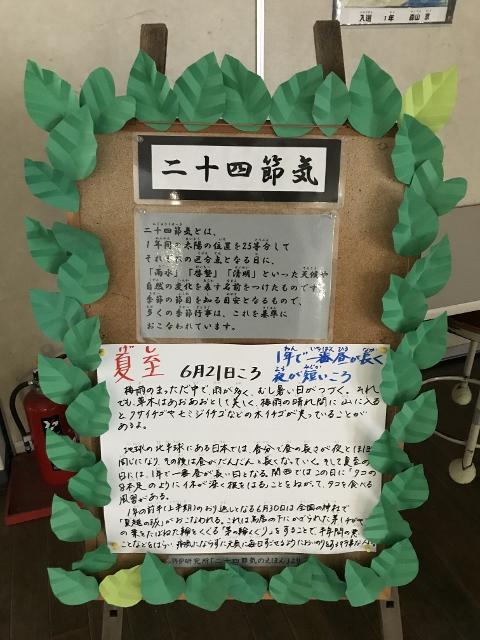 入選 1年 森山
二十四節気
二十四節気とは、
1年間の太陽の位置を25等分して
それぞれの区分点となる日に、
「雨水」「啓蟄」「清明」といった天候や
自然の変化を表す名前をつけたものです。
季節の節目を知る目安となるもので、
多くの季節行事は、これを基準に
おこなわれています。
夏至 6月21日ころ
1年で一番昼が長く
夜が短いころ
梅雨のまっただ中で雨が多く、むし暑い日がつづく。それ
でも、草木はあおあおとして美しく、梅雨の晴れ間に山に入る
とクサイチゴやモミジイチゴなどの木イチゴが実っていることが
あるよ。
地球の北半球にある日本では、春分で昼の長さが夜とほぼ
同じになり、その後は昼がだんだんと長くなっていく。そして夏至の
日には、1年で一番昼が長い日となる。関西ではこの日に「タコの
8本足のようにイネが深く根をはる」ことをねがって、タコを食べる
風習がある。
1年の前半(上半期)のおり返しとなる6月30日は全国の神社で
「夏越の祓」がおこなわれる。これは鳥居の下にかざられた茅(チガヤ)
の葉をたばねた輪をくぐる「茅の輪くぐり」をすることで、半年間の悪い
ことなどをはらい、病気にならずに元気に毎日すごせるようにおいのりする行事なんだ
研究所「二十四節気のえほん」より